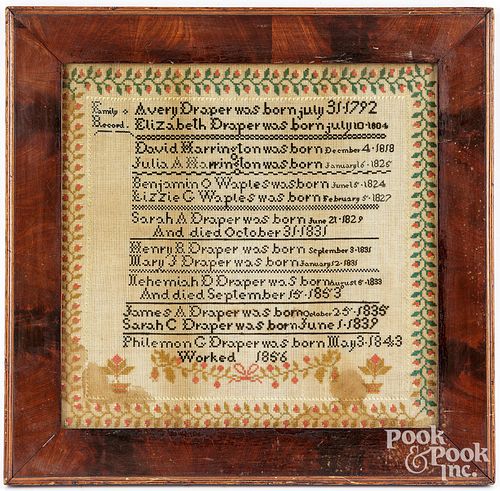 Family Record.
Avery Draper was born july 31 1792
Elizabeth Draper was born july 10 1804
David Harrington was born December 4 1818
Julia A Harrington was born January 16 1826
Benjamin O Waples was born June 15 1824
Lizzie G Waples was born February 5 1827
Sarah A Draper was born June 21 1829
And died October 31 1831
Henry R Draper was born September 3 1831
Mary J Draper was born January 12 1831
Nehemiah D Draper was born August 6 1833
And died September 15 1853
James A Draper was born October 25 1835
Sarah C Draper was born June 1 1839
Philemon G Draper was born May 3 1843
Worked 1856
Pook
& Pook
Inc.